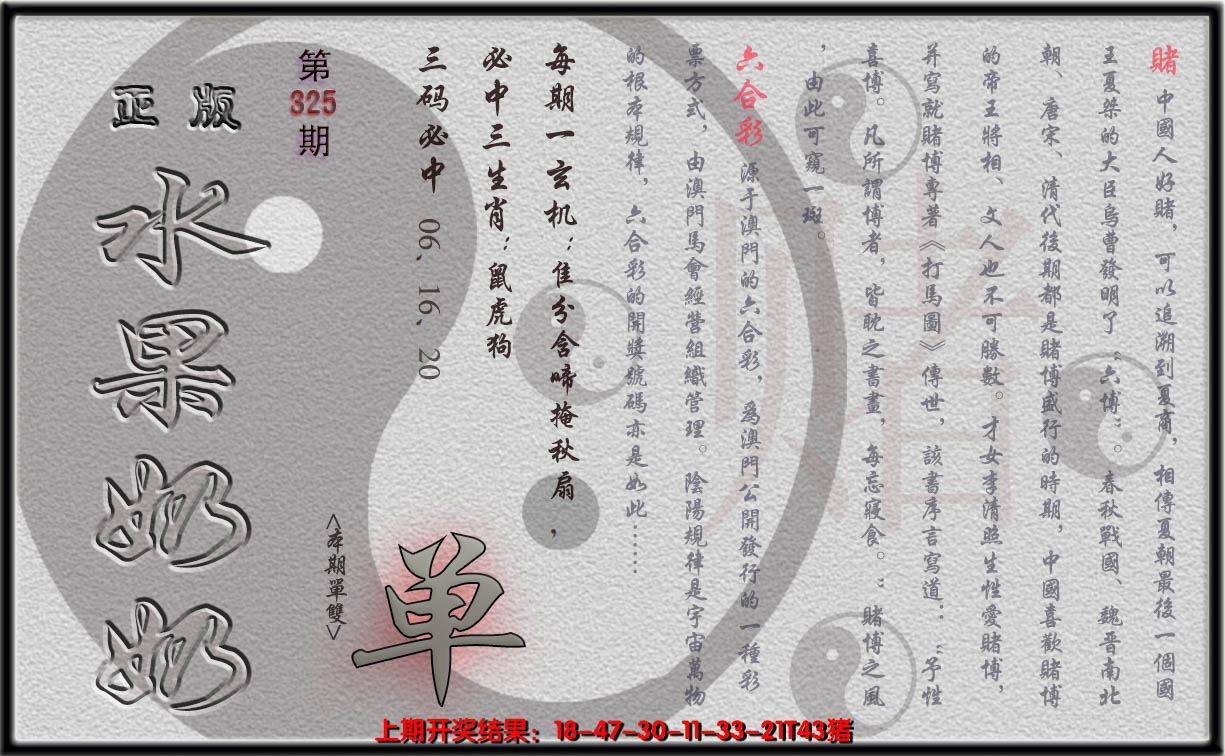 賭 中國人好賭，可以追溯到夏商，相傳夏朝最後一個國
王夏桀的大臣烏曹發明了“六博”。春秋戰國、魏晋南北
朝、唐宋、清代後期都是賭博盛行的時期，中國喜歡賭博
的帝王將相、文人也不可勝數。才女李清照生性愛賭博，
并寫就賭博專著《打馬圖》傳世，該書序言寫道：“予性
喜博。凡所謂博者，皆耽之書畫，每忘寢食。”賭博之風
，由此可窺一斑。
六合彩 源于澳門的六合彩，爲澳門公開發行的一種彩
票方式，由澳門馬會經營組織管理。陰陽規律是宇宙萬物
的根本規律，六合彩的開獎號碼亦是如此……
每期一玄机：隹分含啼掩秋扇，
必中三生肖：鼠虎狗
三码必中 06、16、20
第325期
正版
水果奶奶
<本期單雙>
单
赌
上期开奖结果：18-47-30-11-33-21T43猪